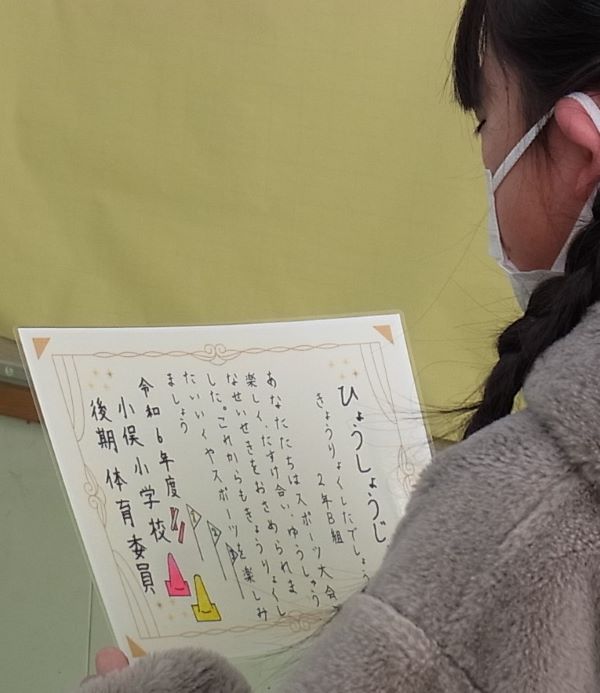 ひょうしょうじ
きょうりょくしたでしょう
2年B組
あなたたちはスポーツ大会
楽しく、たすけ合い、ゆうしゅう
なせいせきをおさめられま
した。これからもきょうりょくし
たいいくやスポーツを楽しみ
ましょう
令和6年度
小俣小学校
後期体育委員